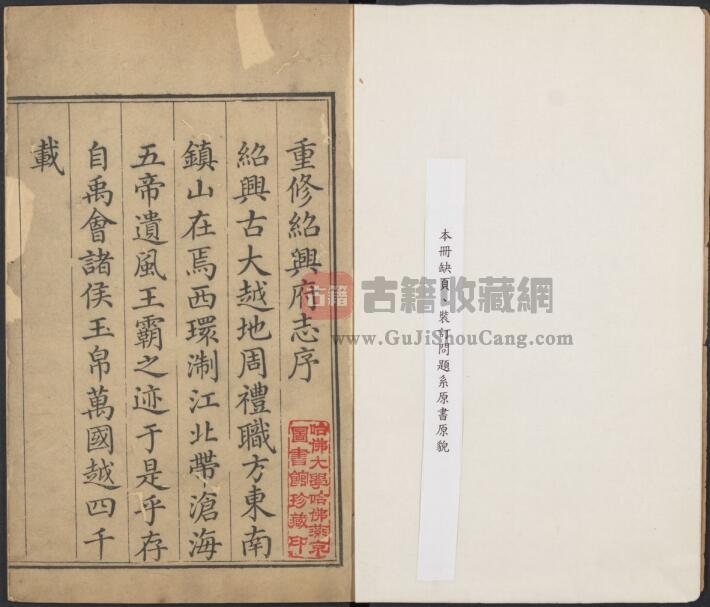 重修紹興府志序
紹興古大越地周禮職方東南
鎮山在焉西環淛江北帶滄海
五帝遺風王霸之迹于是乎存
自禹會諸侯玉帛萬國越四千
載
哈佛大學哈佛燕京
圖書館珍藏印
本冊缺頁、裝訂問題系原書原貌
古籍
古籍收藏網
www.GuJiShouCang.com